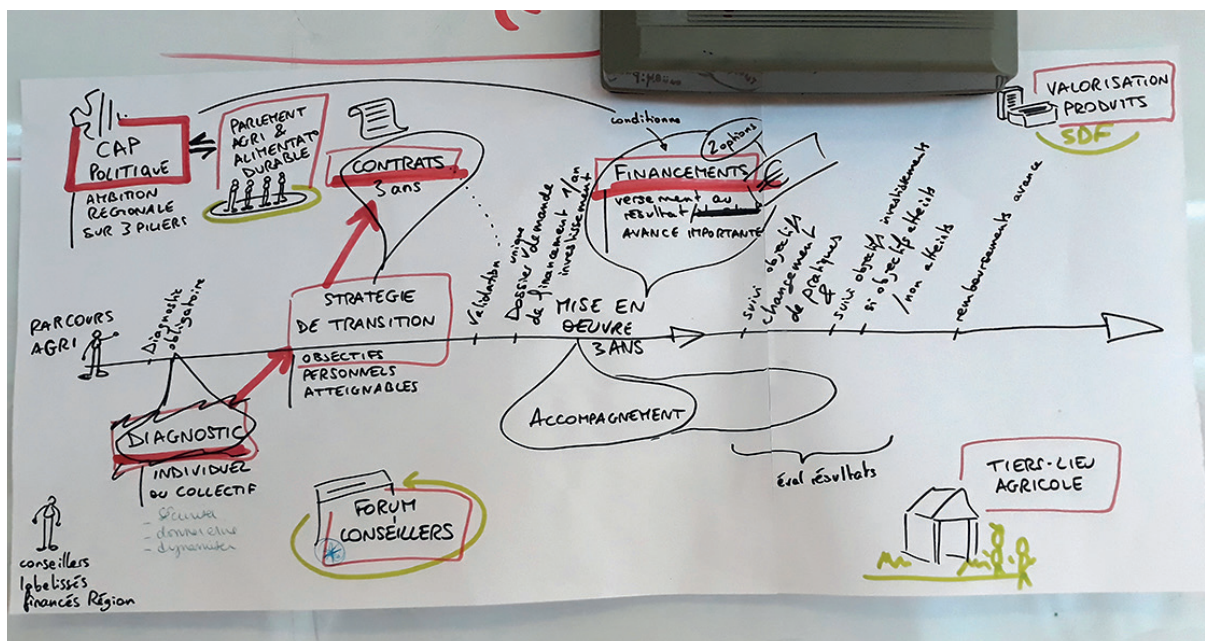 CAP
POLITIQUE
AMBITION
RÉGIONALE
SUR 3 PILIERS
PARLEMENT
AGRI &
ALIMENTATº
DURABLE
CONTRATS
3 ans
conditionne
2 options
FINANCEMENTS
€
versement au
résultat/
AVANCE IMPORTANTE
VALORISATION
PRODUITS
SDF
PARCOURS
AGRI
Diagnostic
obligatoire
STRATÉGIE
DE TRANSITION
OBJECTIFS
PERSONNELS
ATTEIGNABLES
Validation
Dossier unique
de demande
de financement 1/an
investissement
MISE EN
OEUVRE
3 ANS
suivi objectifs
changement
de pratiques
&
suivi objectifs investissements
si objectifs atteints
/non atteints
remboursements avance
DIAGNOSTIC
INDIVIDUEL
OU COLLECTIF
ACCOMPAGNEMENT
éval résultats
FORUM
CONSEILLERS
TIERS-LIEU
AGRICOLE
conseillers
labelissés
financés Région